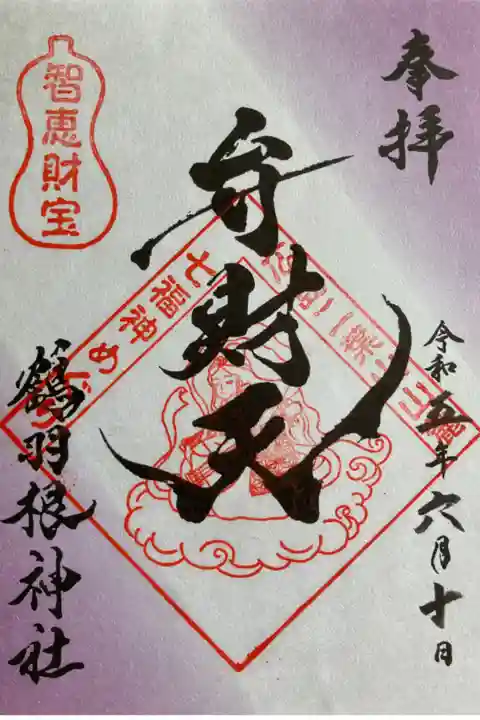 奉拝
令和五年六月十日
弁財天
七福神めぐり
智恵財宝
鶴羽根神社